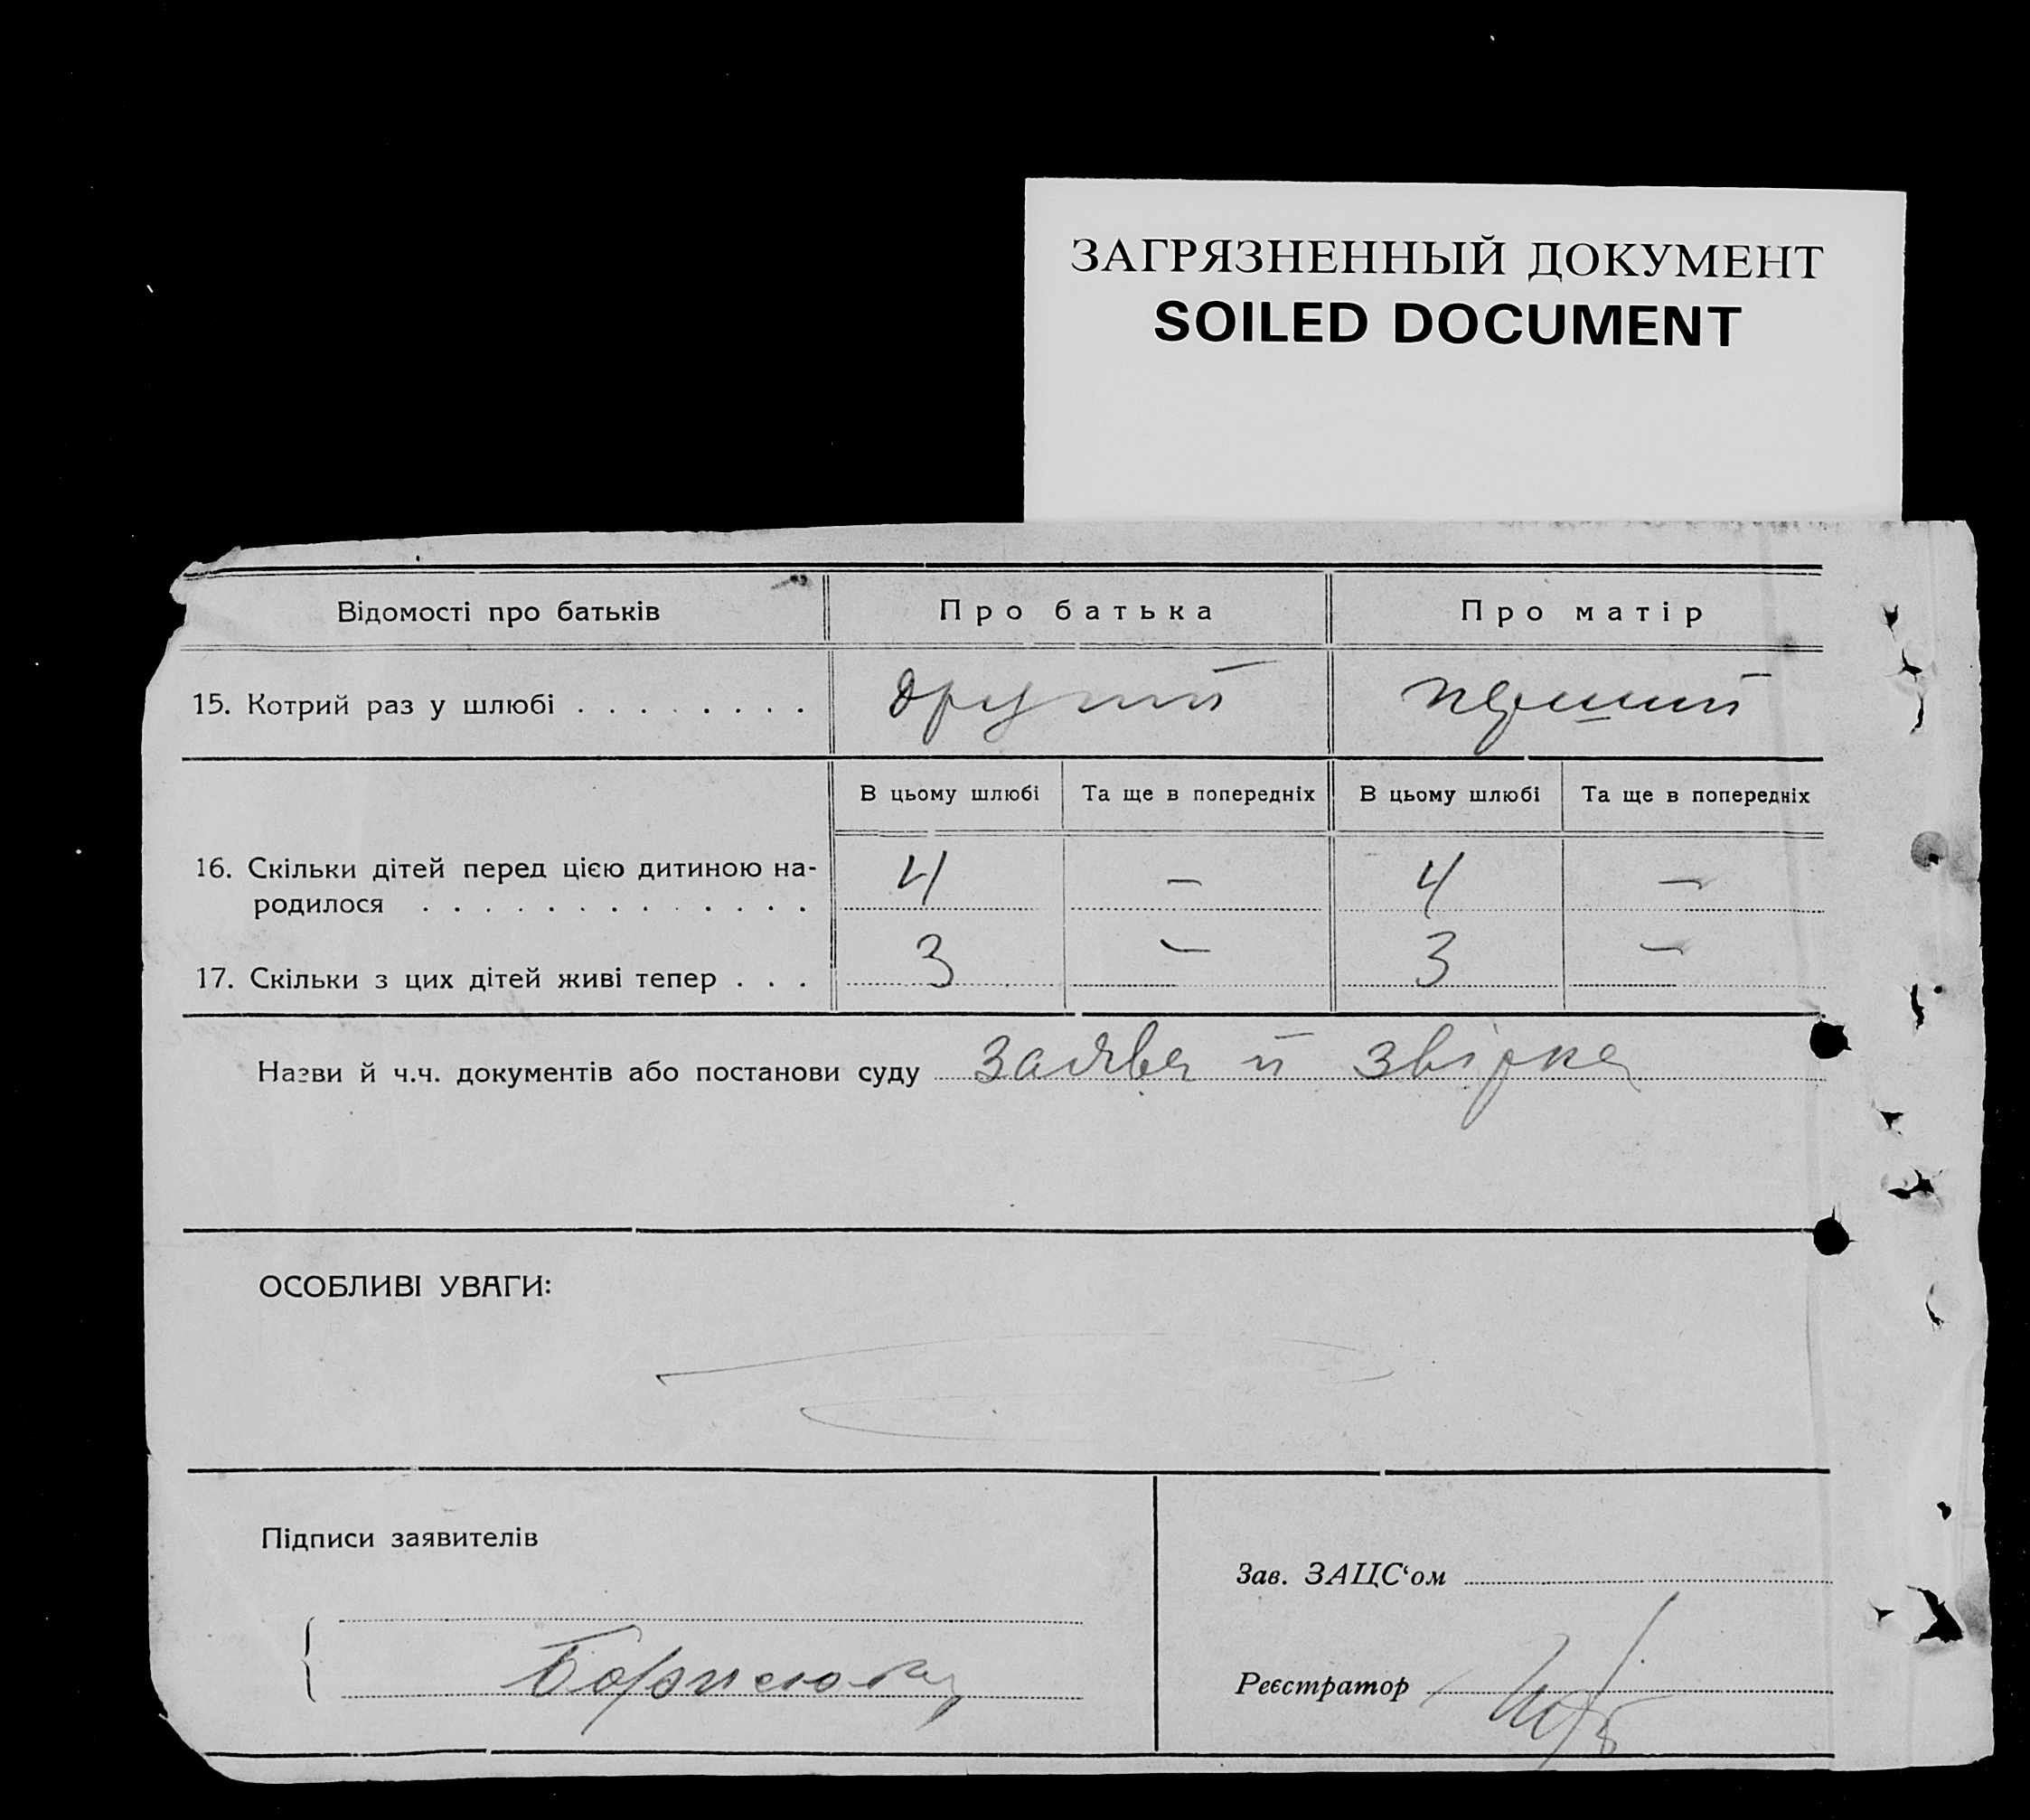 ЗАГРЯЗНЕННЫЙ ДОКУМЕНТ
SOILED DOCUMENT
Відомості про батьків Про батька Про матір
15. Котрий раз у шлюбі . . . . . . . . другий перший
В цьому шлюбі Та ще в попередніх В цьому шлюбі Та ще в попередніх
16. Скільки дітей перед цією дитиною на-
родилося . . . . . . . . . . . . . 4 — 4 —
17. Скільки з цих дітей живі тепер . . . 3 — 3 —
Назви й ч.ч. документів або постанови суду заява й звірка
ОСОБЛИВІ УВАГИ:
Підписи заявителів
Зав. ЗАЦС‘ом
Реєстратор